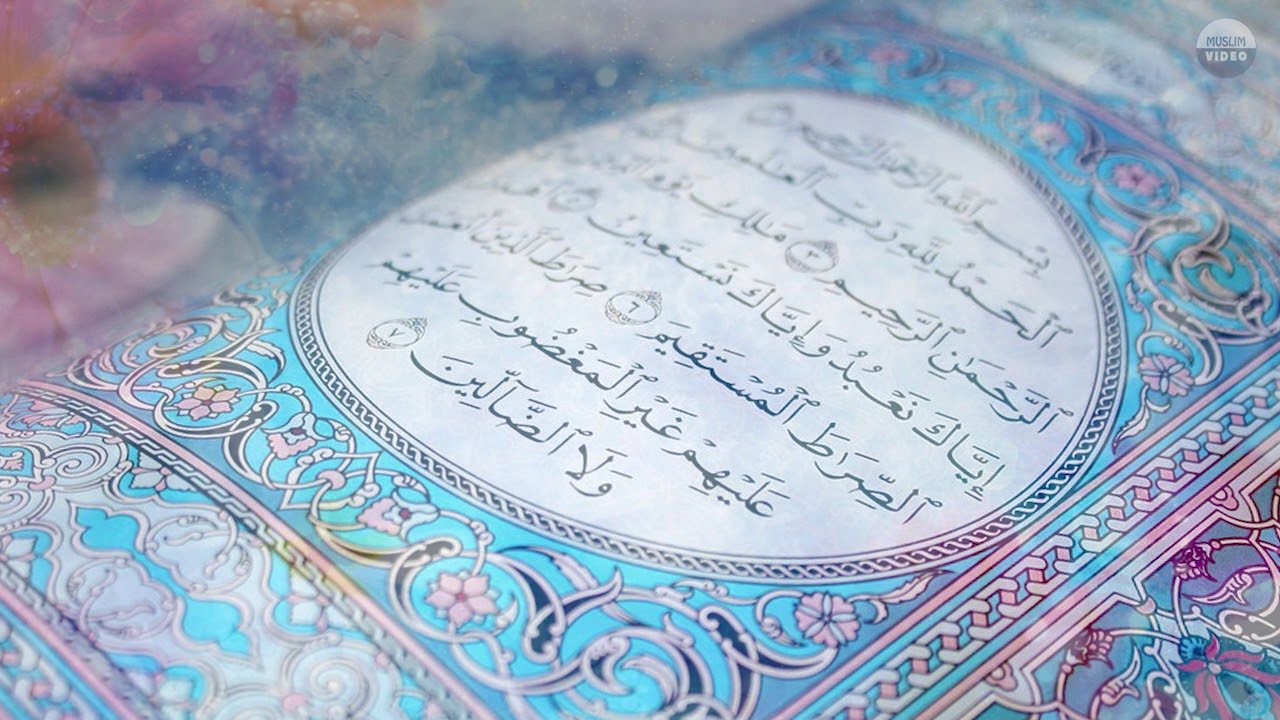 MUSLIM
VIDEO
بِسْمِ ٱللَّهِ ٱلرَّحْمَٰنِ ٱلرَّحِيمِ
ٱلْحَمْدُ لِلَّهِ رَبِّ ٱلْعَٰلَمِينَ
ٱلرَّحْمَٰنِ ٱلرَّحِيمِ ٣ مَٰلِكِ يَوْمِ ٱلدِّينِ
إِيَّاكَ نَعْبُدُ وَإِيَّاكَ نَسْتَعِينُ ٥ ٱهْدِنَا
ٱلصِّرَٰطَ ٱلْمُسْتَقِيمَ ٦ صِرَٰطَ ٱلَّذِينَ أَنْعَمْتَ
عَلَيْهِمْ غَيْرِ ٱلْمَغْضُوبِ عَلَيْهِمْ
وَلَا ٱلضَّآلِّينَ ٧